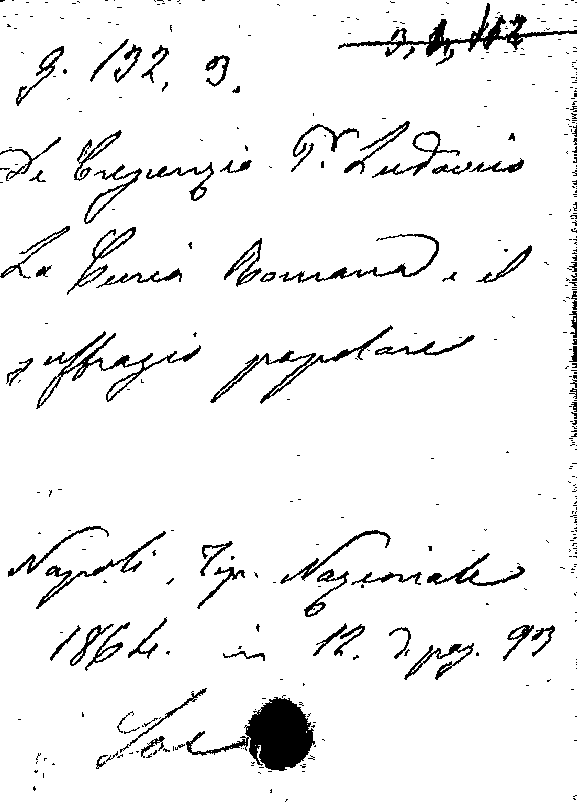 3, 1, 112
g. 132, 3.
De Crepenzio Pr. Ludovico
La Curia Romana e il
suffragio popolare
Napoli, Tip. Nazionale
1864. in 12. di pag. 93